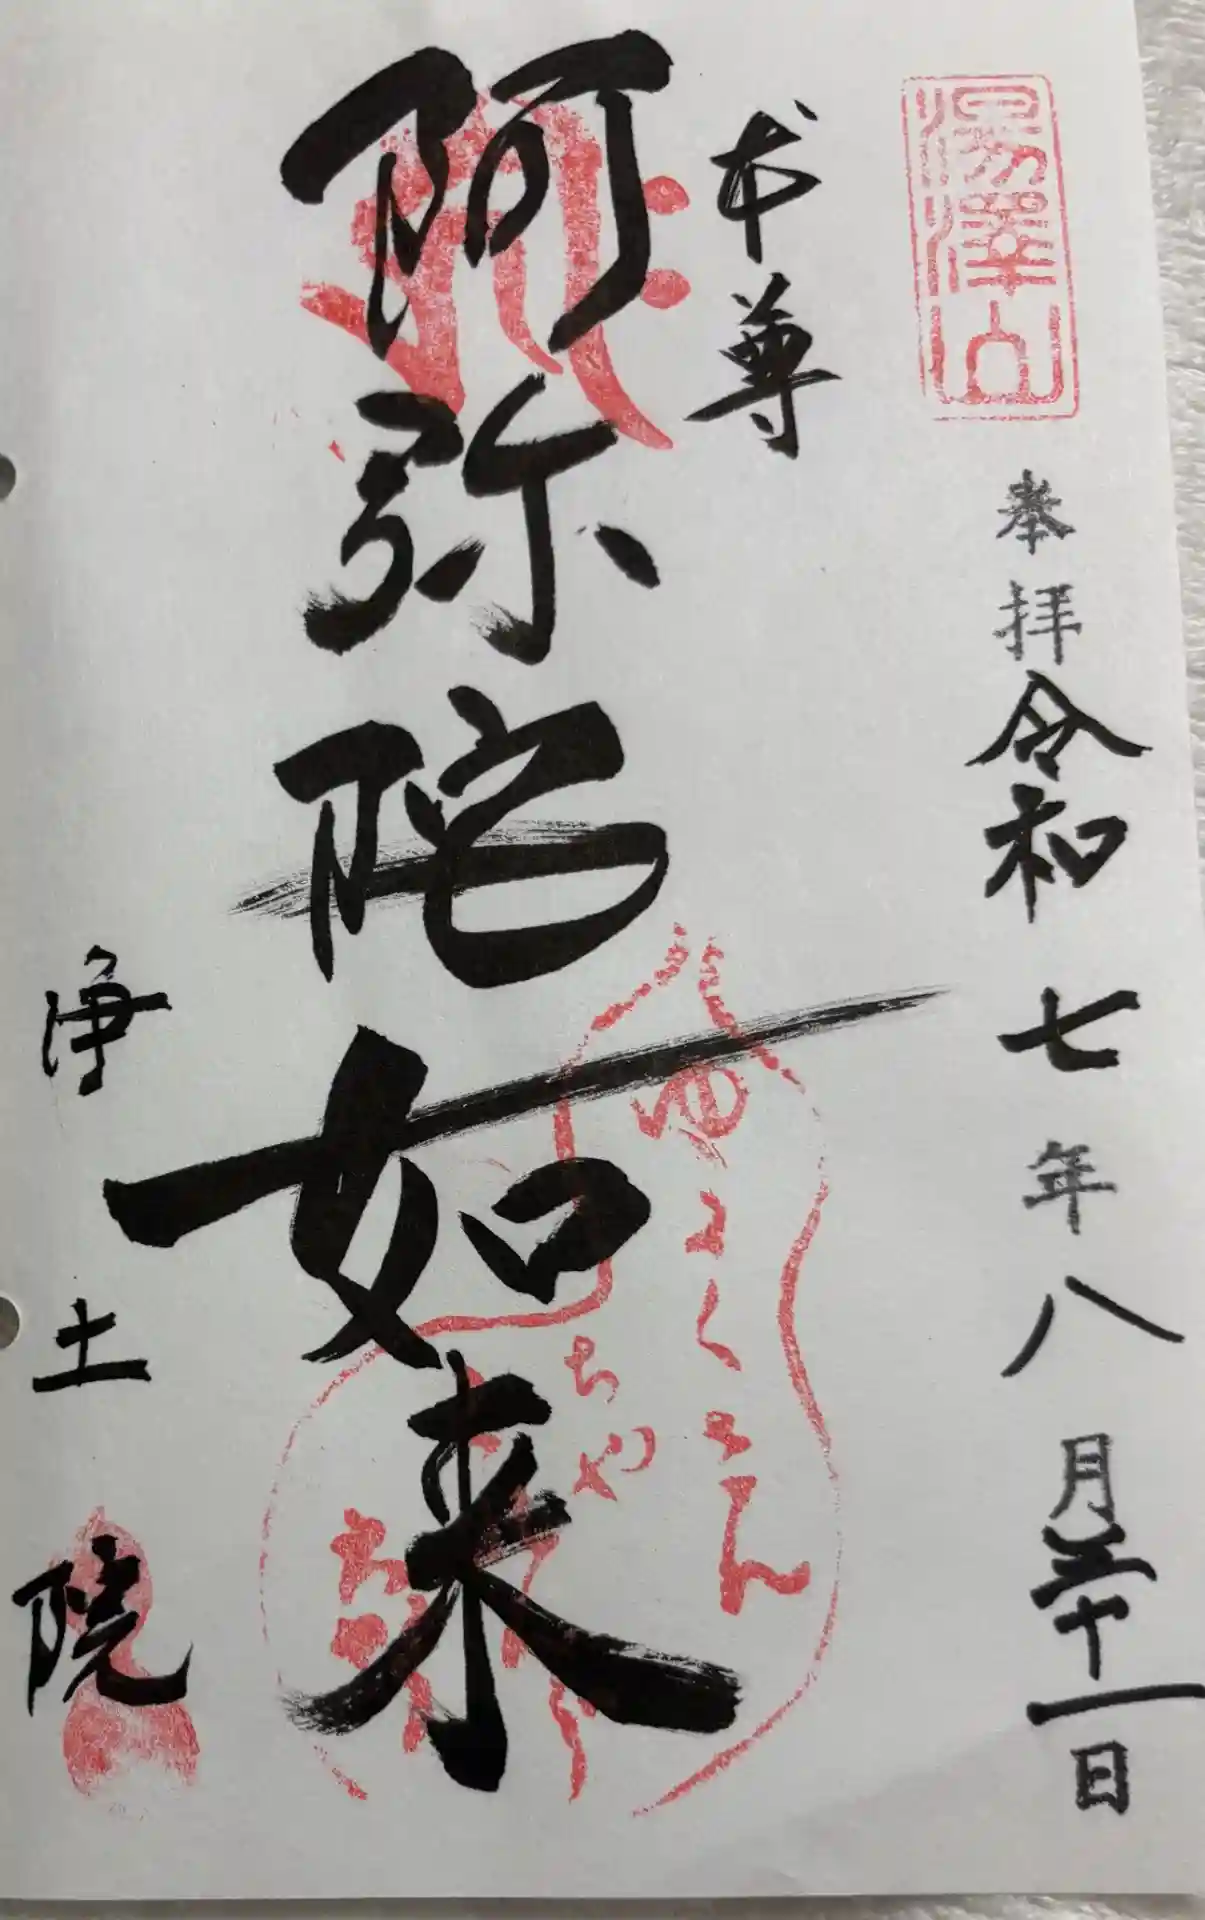 湯澤山
奉拝 令和七年八月三十一日
本尊
阿弥陀如来
ゆたくさん
ちや
浄土院